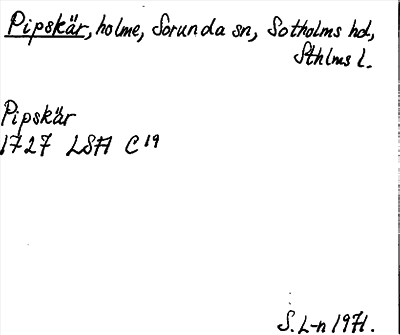 Pipskär, holme, Sorunda sn, Sotholms hd,
Sthlms l.
Pipskär
1727 LSA C 19
S. L-n 1971.